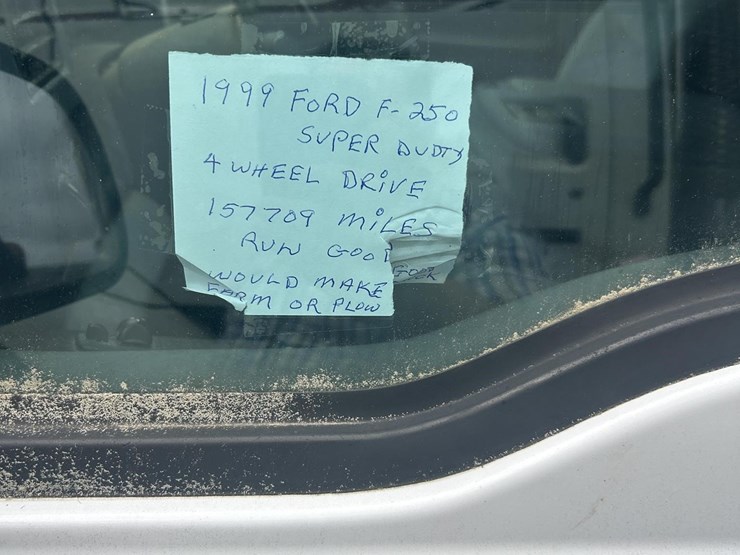 1999 FORD F-250
SUPER DUDTY
4 WHEEL DRIVE
157709 MiLES
RUN GOOD
WOULD MAKE GOOD
FARM OR PLOW